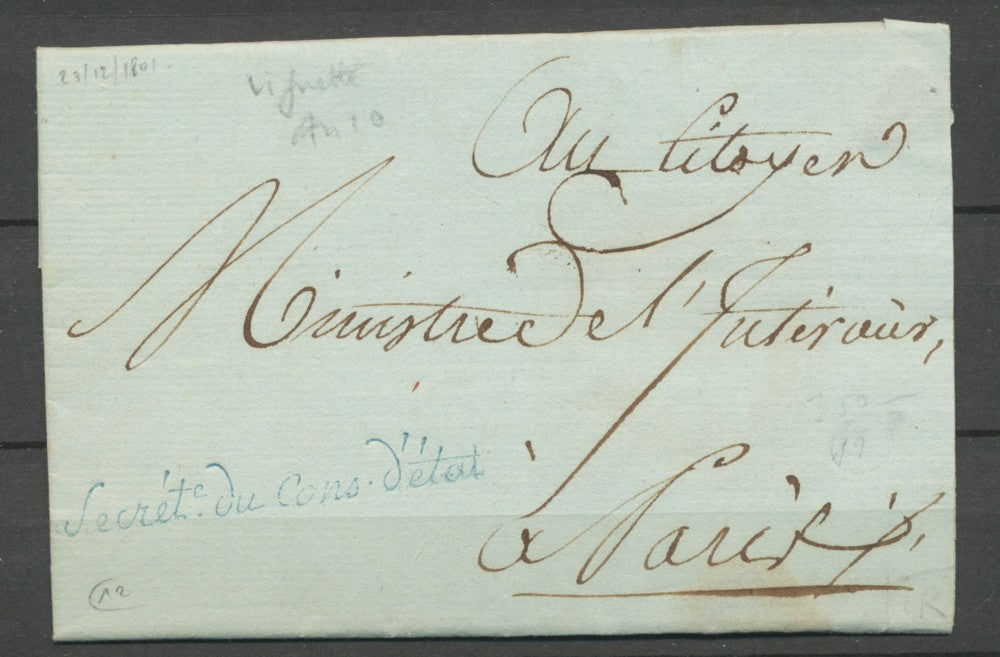 23/12/1801
Vignette
An 10
Au Citoyen
Ministre de l'Intérieur,
Secrét.e du Cons. d'état
à Paris
12